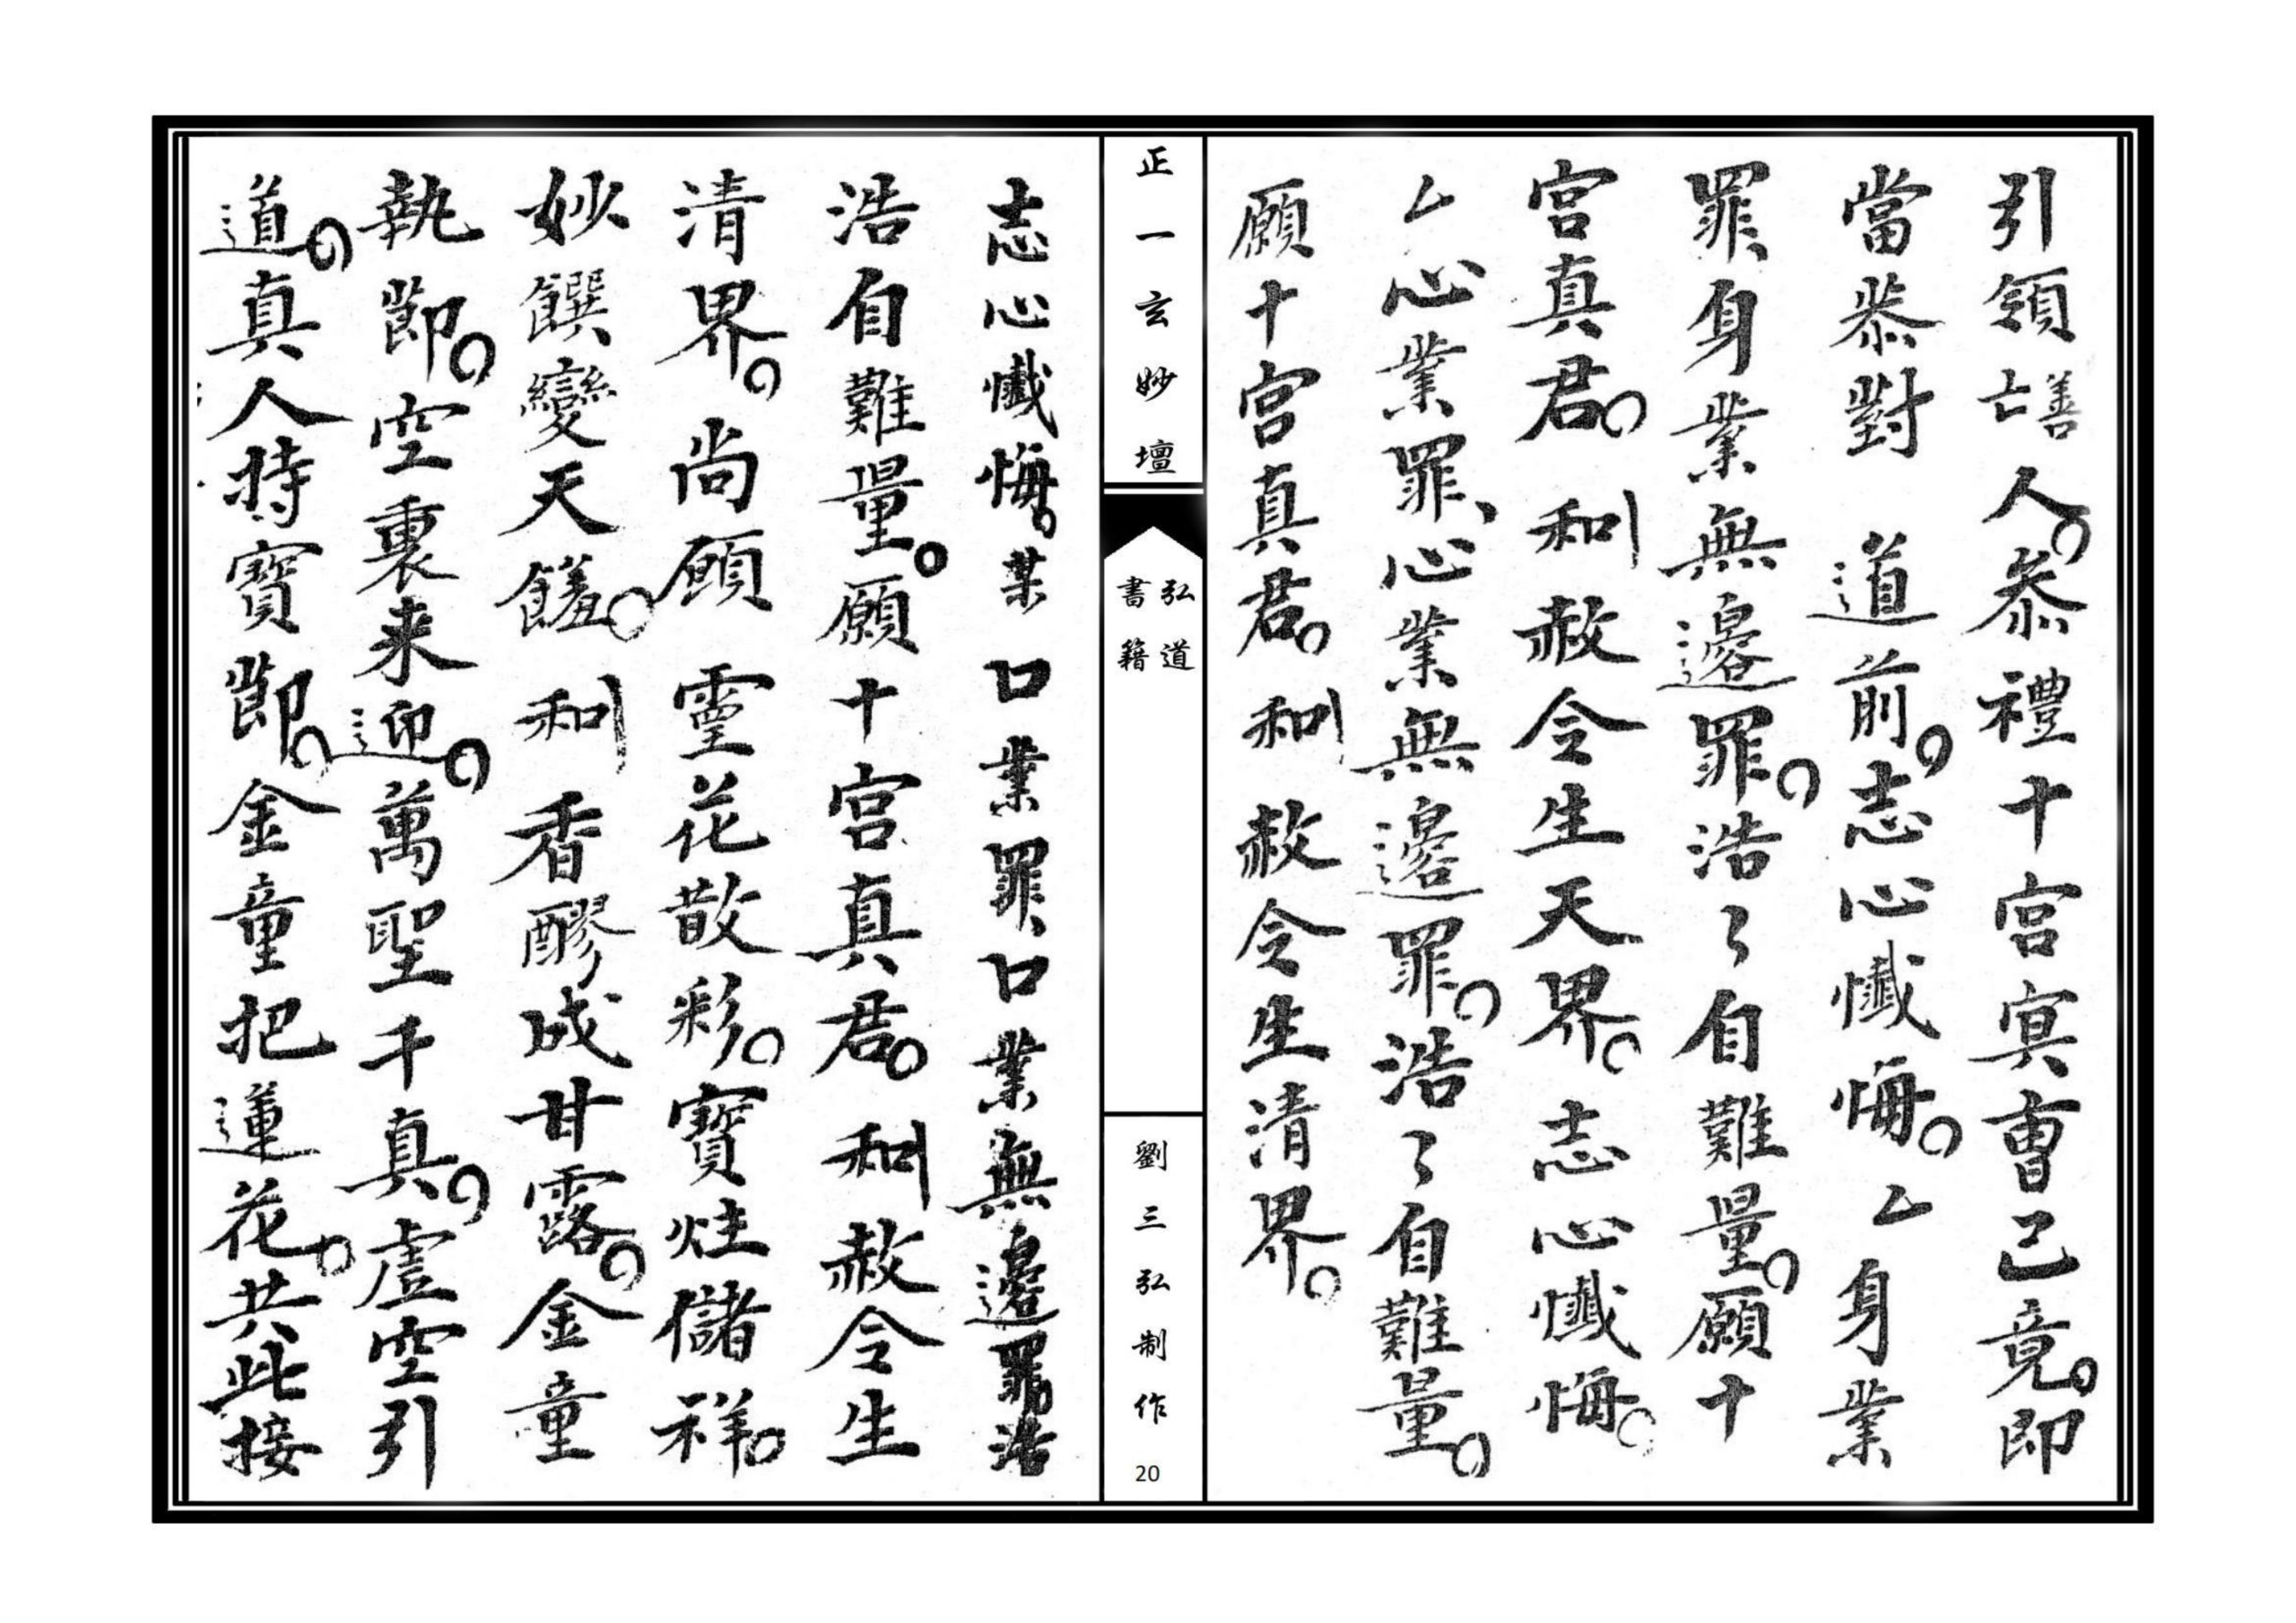 引領亡善人。叅禮十宮㝠曺已竟。即
當叅對　道前。志心懺悔。厶身業
罪、身業無邊罪。浩了自難量。願十
宮真君。　和　赦令生天界。志心懺悔。
厶心業罪、心業無邊罪。浩了自難量。
願十宮真君。　和　赦令生清界。
正一玄妙壇
弘道
書籍
劉三弘制作
20
志心懺悔。某口業罪、口業無邊罪。浩
浩自難量。願十宮真君。　和　赦令生
清界。　尚願　靈花散彩。寶炷儲祥。
妙饌變天饈。　和　香醪成甘露。金童
執節。空裏来迎。萬聖千真。虛空引
道。真人持寶節。金童把蓮花。共此接